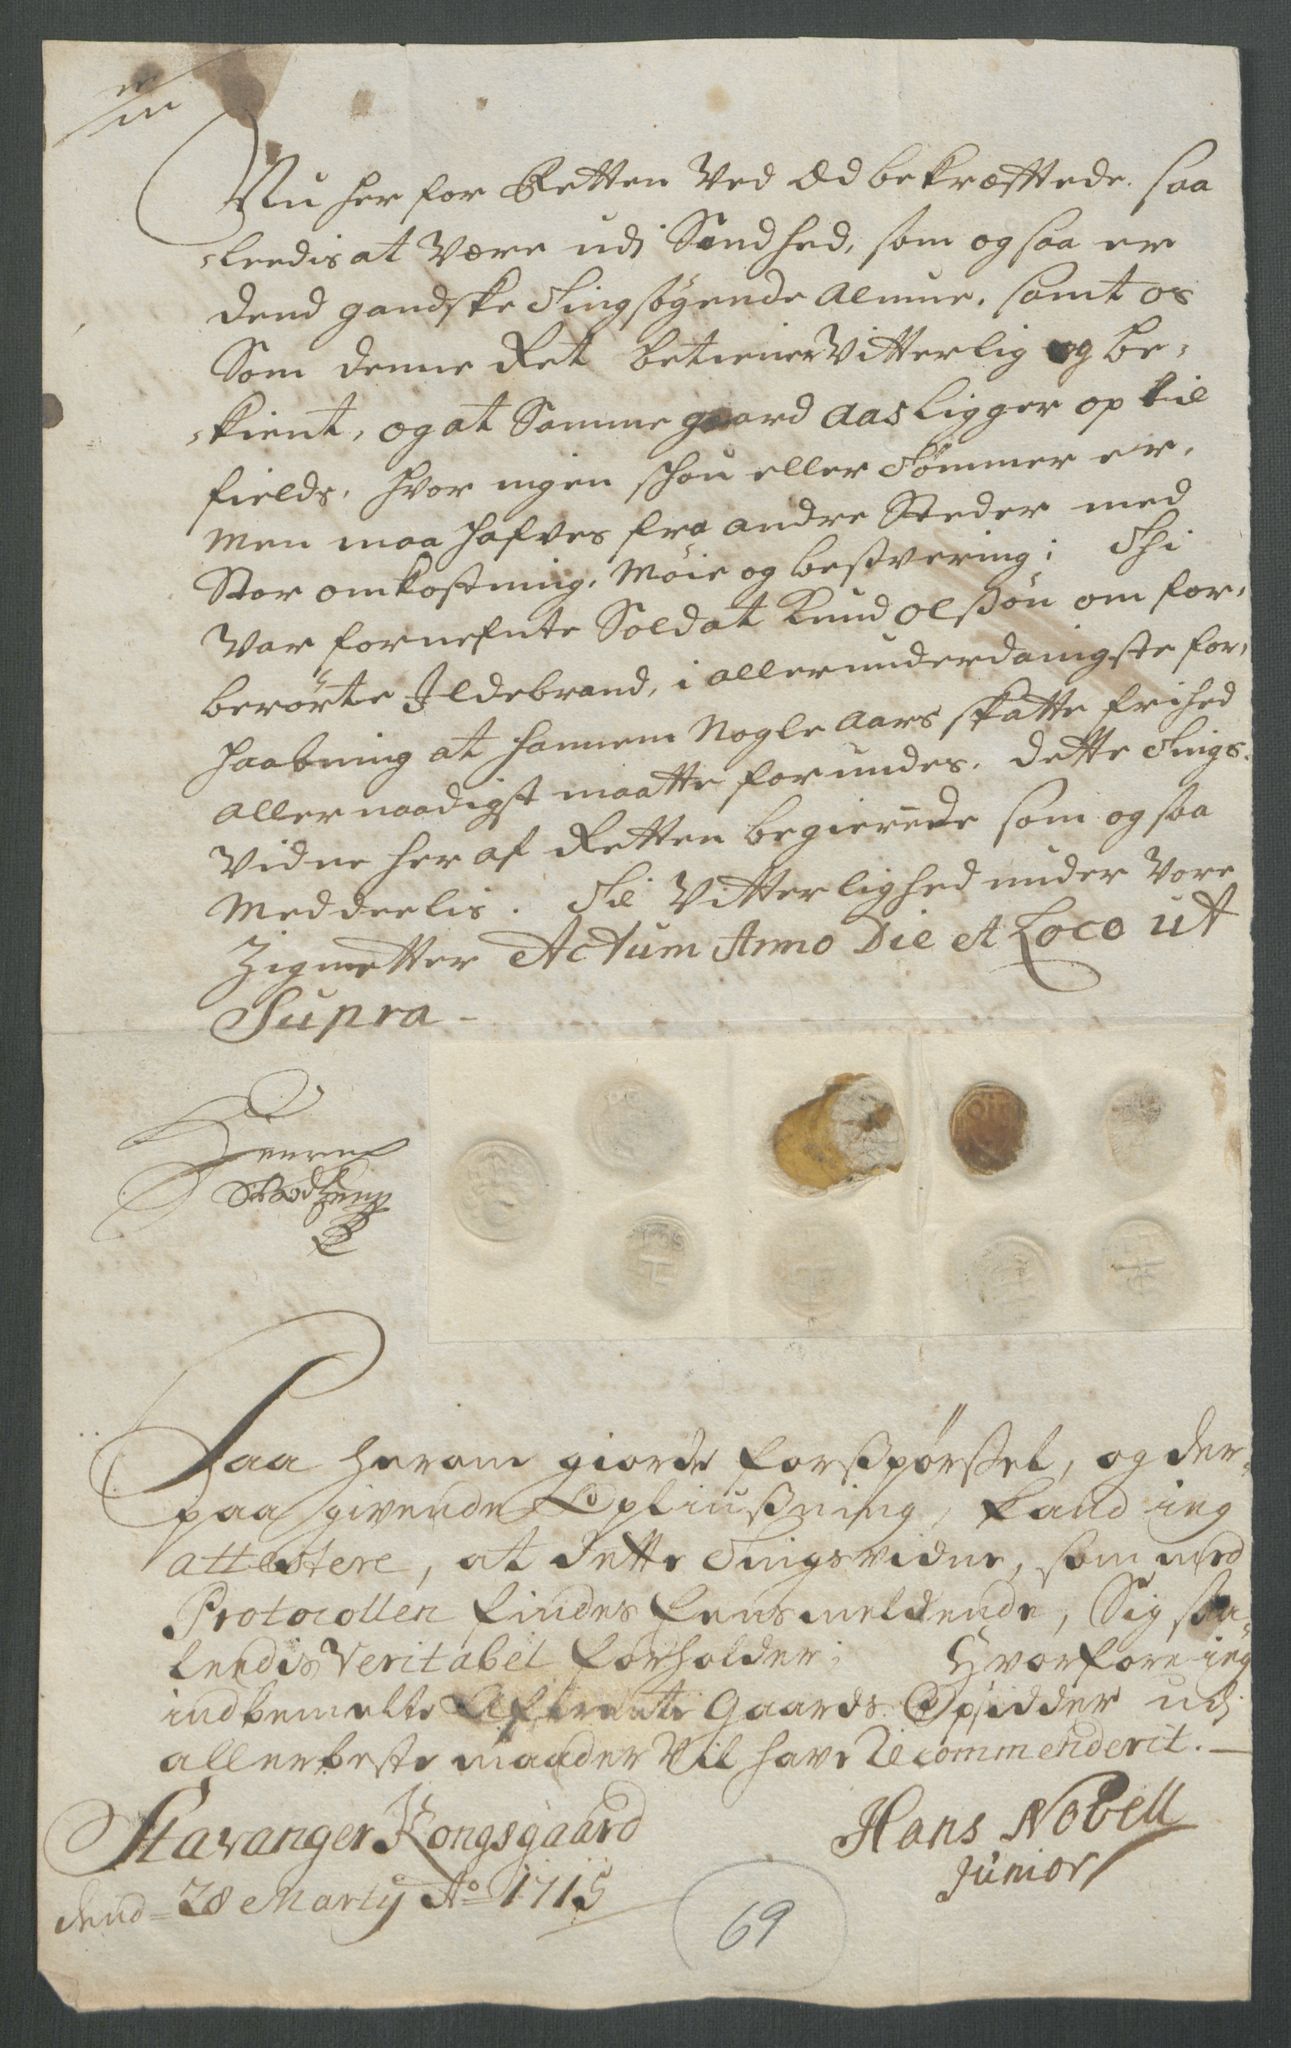 Nu her for Retten Ved Eed bekræfttede. saa
leedis at Være udj Sandhed, som og saa er
dend gandske Tingsøgende Almue. samt os
Som denne Ret betiener Vitterlig og be-
kient, og at Samme gaard Aas ligger op til
fields, hvor ingen schou eller Tømmer er,
Men maa hafves fra andre Steder med
Stor omkostning, Møie og besværing; Thi
Var fornefnte Soldat Knud olsøn om for-
berørte Jldebrand, i allerunderdanigste for-
haabning at hannem Nogle Aars skatte frihed
Allernaadigst maatte forundes. dette Tings-
Vidne her af Retten begierede som og saa
Meddeelis. Til Vitterlighed under Vore
Zigneetter Actum Anno Die et Loco ut
Supra -
Paa herom giorde forspørssel, og der-
paa givende Opliussning, kand ieg
attestere, at dette Tingsvidne, som med
Protocollen findes Eensmeldende, Sig saa-
leedis Veritabel forholder; Hvorfore ieg
indbemelte Afbrente Gaards Opsidder udj
allerbeste maader Vil have Recommenderit.
Stavanger Kongsgaard
dend 28 Martij Ao 1715
Hans Nobell
Junior
69